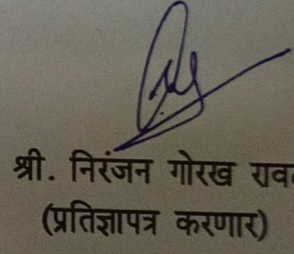 श्री. निरंजन गोरख
(प्रतिज्ञापत्र करणार)